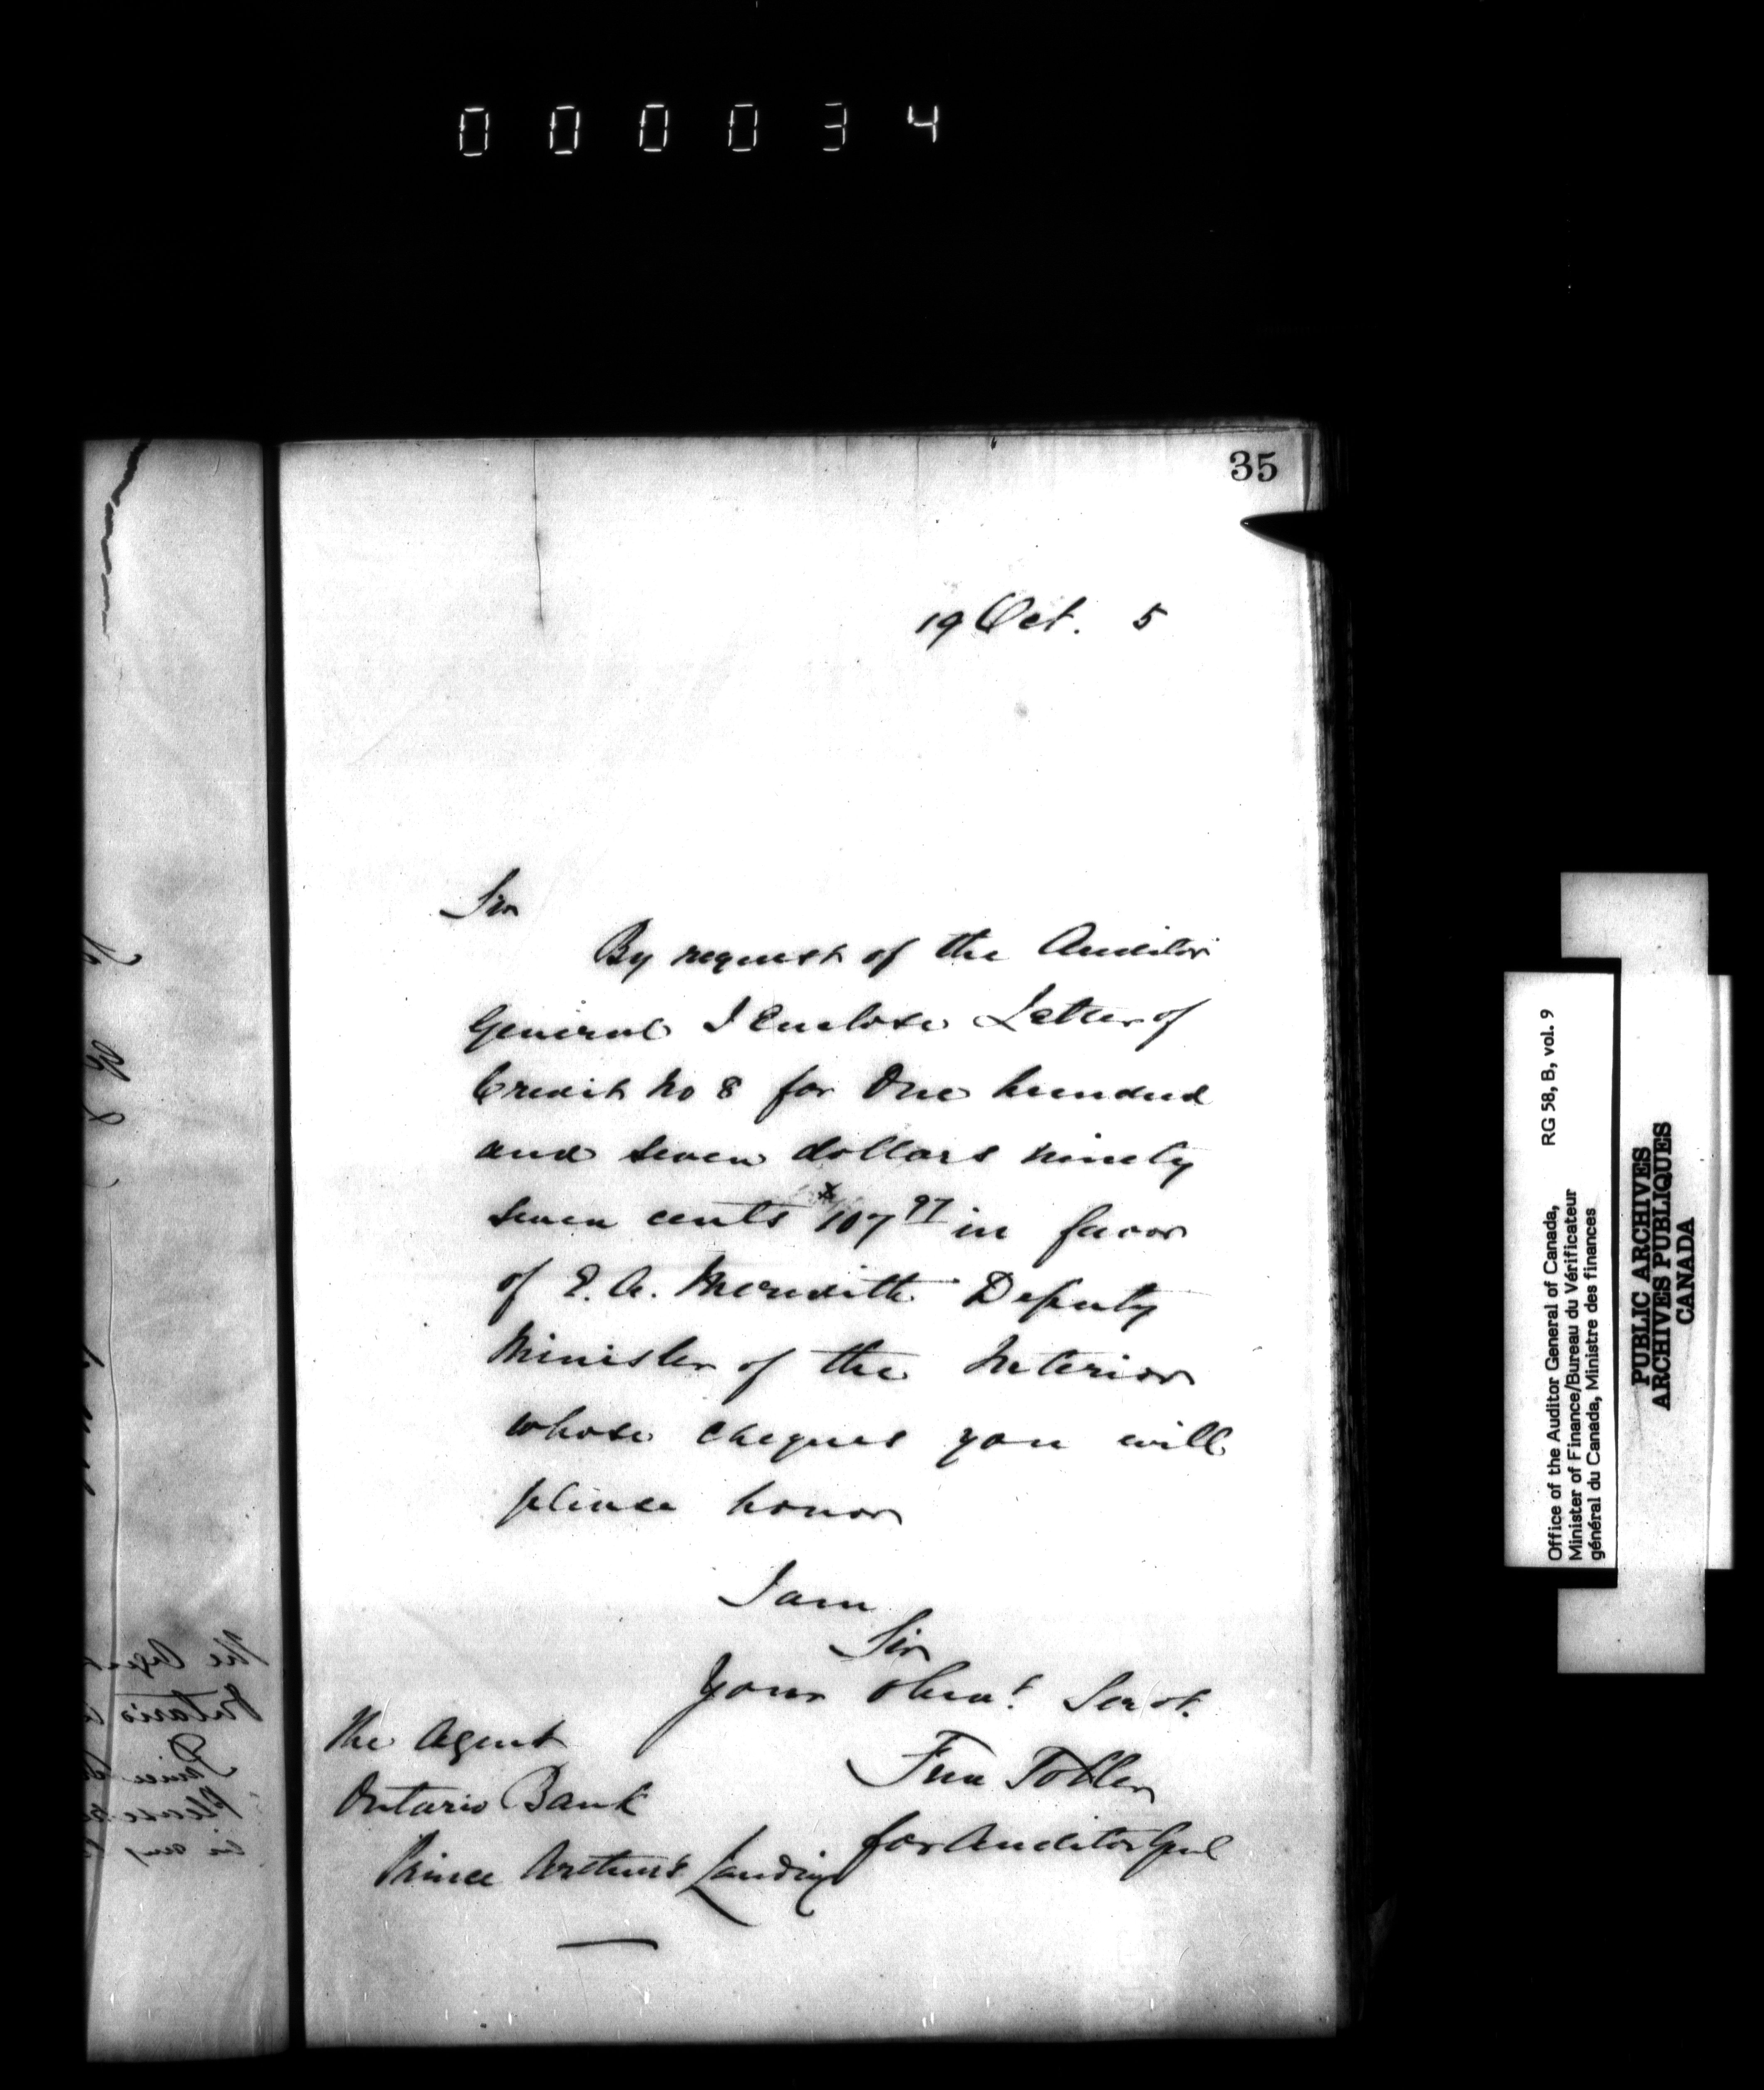 000034
35
19 Oct. 5
Sir
By request of the Auditor
General I Enclose Letter of
Credit No 8 for One hundred
and seven dollars ninety
seven cents $107 97 in favor
of E. A. Meredith Deputy
Minister of the Interior
whose cheques you will
please honor
I am
Sir
Your Obedt. Servt.
Fred Toller
for Auditor Genl
The Agent
Ontario Bank
Prince Arthur's Landing
Office of the Auditor General of Canada, RG 58, B, vol. 9
Minister of Finance/Bureau du Vérificateur
général du Canada, Ministre des finances
PUBLIC ARCHIVES
ARCHIVES PUBLIQUES
CANADA